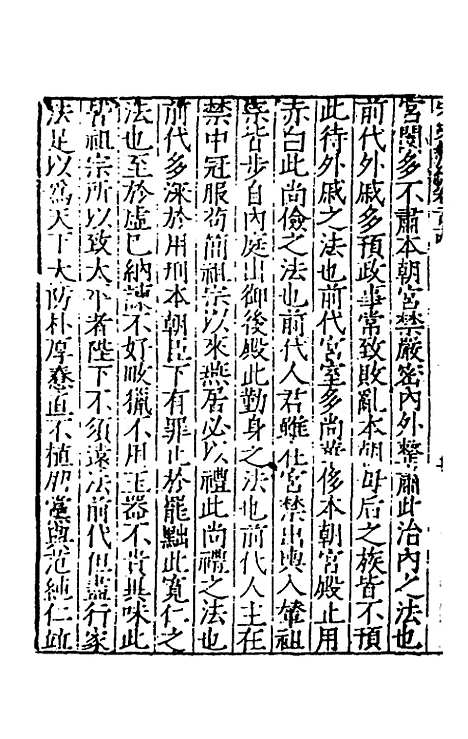 宮闈多不肅本朝宮禁嚴密內外整肅此治內之法也
前代外戚多預政事常致敗亂本朝母后之族皆不預
此待外戚之法也前代宮室多尚華侈本朝宮殿止用
赤白此尚儉之法也前代人君雖在宮禁出輿入輦祖
宗皆步自內庭出御後殿此勤身之法也前代人主在
禁中冠服苟簡祖宗以來燕居必以禮此尚禮之法也
前代多深於用刑本朝臣下有罪止於罷黜此寬仁之
法也至於虛己納諫不好畋獵不用玉器不貴異味此
皆祖宗所以致太平者陛下不須遠法前代但盡行家
法足以爲天下大防朴厚惷直不植朋黨與范純仁竝